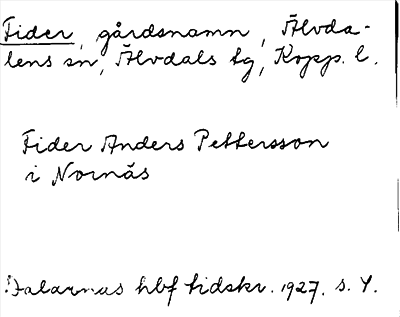 Fider, gårdsnamn, Älvda-
lens sn, Älvdals tg, Kopp. l.
Fider Anders Pettersson
i Nornäs
Dalarnas hbf tidskr. 1927. s. 4.